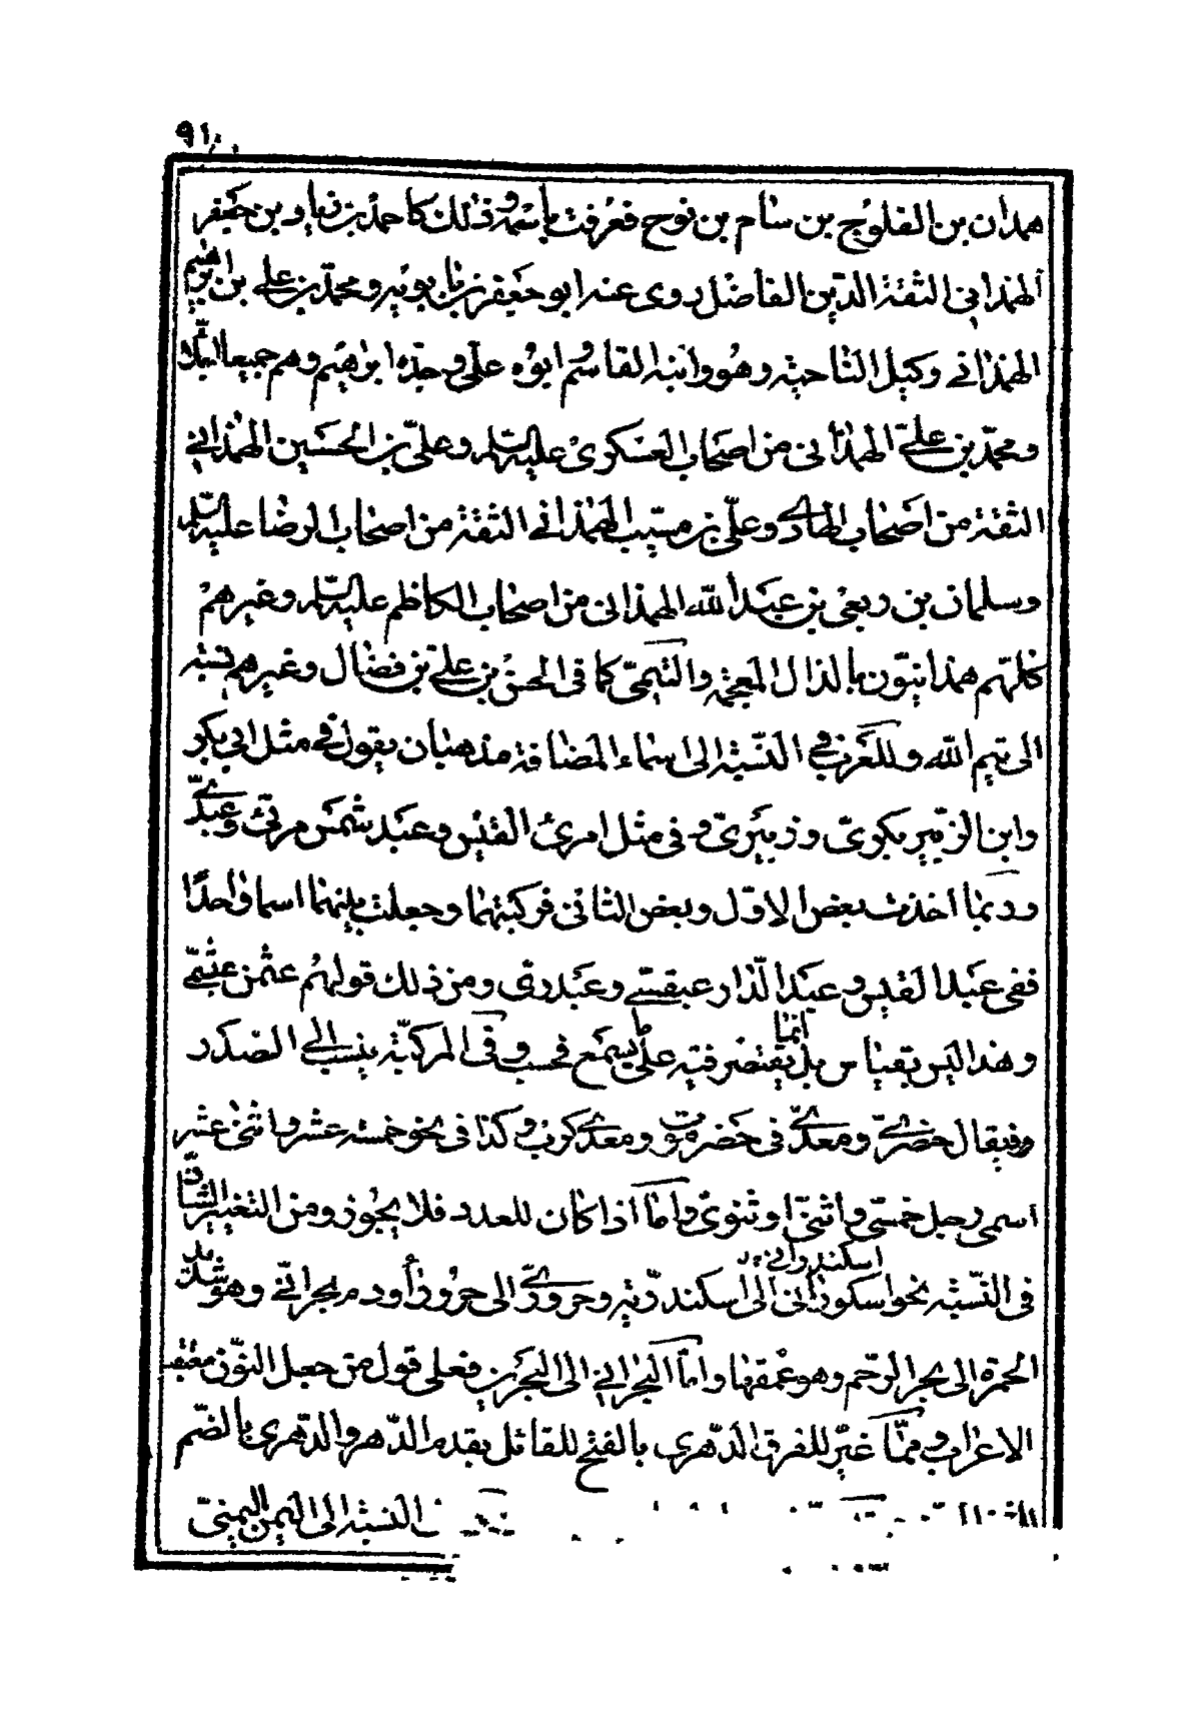 ٩١
همدان بن الفلوج بن سام بن نوح فعرفت باسمه وذلك كاحمد بن زياد بن جعفر
الهمذاني الثقة الدين الفاضل روى عنه ابو جعفر بن بابويه ومحمد بن علي بن ابرهيم
الهمذاني وكيل الناحية وهو وابنه القاسم وابوه علي وجده ابراهيم وهم جميعا وكلا
ومحمد بن علي الهمذاني من اصحاب العسكري عليه السلم وعلي بن الحسين الهمذاني
الثقة من اصحاب الهادي وعلي بن مسيب الهمذاني الثقة من اصحاب الرضا عليه السلم
وسلمان بن ربعى بن عبد الله الهمذاني من اصحاب الكاظم عليه السلم وغيرهم
فكلهم همذانيون بالذال المعجمة والتيمي كما في الحسن بن علي بن فضال وغيرهم نسبة
الى تيم الله وللعرب في النسبة الى اسماء المضافة مذهبان يقول في مثل ابي بكر
وابن الزبير بكرى وزبيرى وفي مثل امرئ القيس وعبد شمس مرئي وعبدي
وربما اخذت بعض الاول وبعض الثاني فركبتهما وجعلت بينهما اسما واحدا
ففي عبد القيس وعبد الدار عبقسي وعبدري ومن ذلك قولهم عثمن عبشمي
وهذا ليس بقياس بل انما يقتصر فيه على ما يسمع فحسب وفي المركبة ينسب الى الصدر
فيقال حضري ومعدي في حضرموت ومعدي كرب وكذا في نحو خمسة عشر واثنى عشر
اسمي رجل خمسي واثنى او ثنوى واما اذا كان للعدد فلا يجوز ومن التغيير الشاذ
في النسبة نحو اسكندراني الى اسكندرية وحروري الى حروراء ودم بحراني وهو شديد
الحمرة الى بحر الرحم وهو عمقها واما البحراني الى البحرين فعلى قول من جعل النون معتقب
الاعراب ومما غير للفرق الدهري بالفتح للقائل بقدم الدهر والدهري بالضم
النسبة الى اليمن اليمني